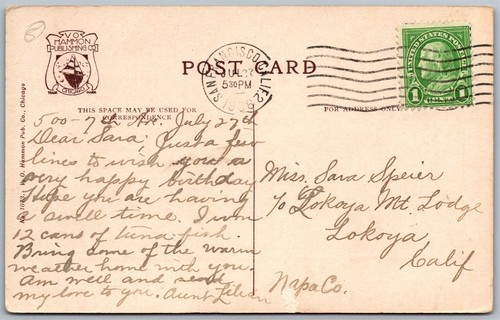 V.O.
HAMMON
PUBLISHING CO.
CHICAGO
POST CARD
SAN FRANCISCO, CALIF. 2
JUL 27
5 30 PM
UNITED STATES POSTAGE
1 1
THIS SPACE MAY BE USED FOR
CORRESPONDENCE
FOR ADDRESS ONLY
V. O. Hammon Pub. Co., Chicago
500-7th Av. July 27th
Dear Sara; Just a few
lines to wish you a
very happy birthday
Hope you are having
a swell time. I won
12 cans of tuna-fish.
Bring some of the warm
weather home with you.
Am well and send
my love to you. Aunt Lilian
Miss. Sara Speier
℅ Lokoya Mt. Lodge
Lokoya
Calif
Napa Co.